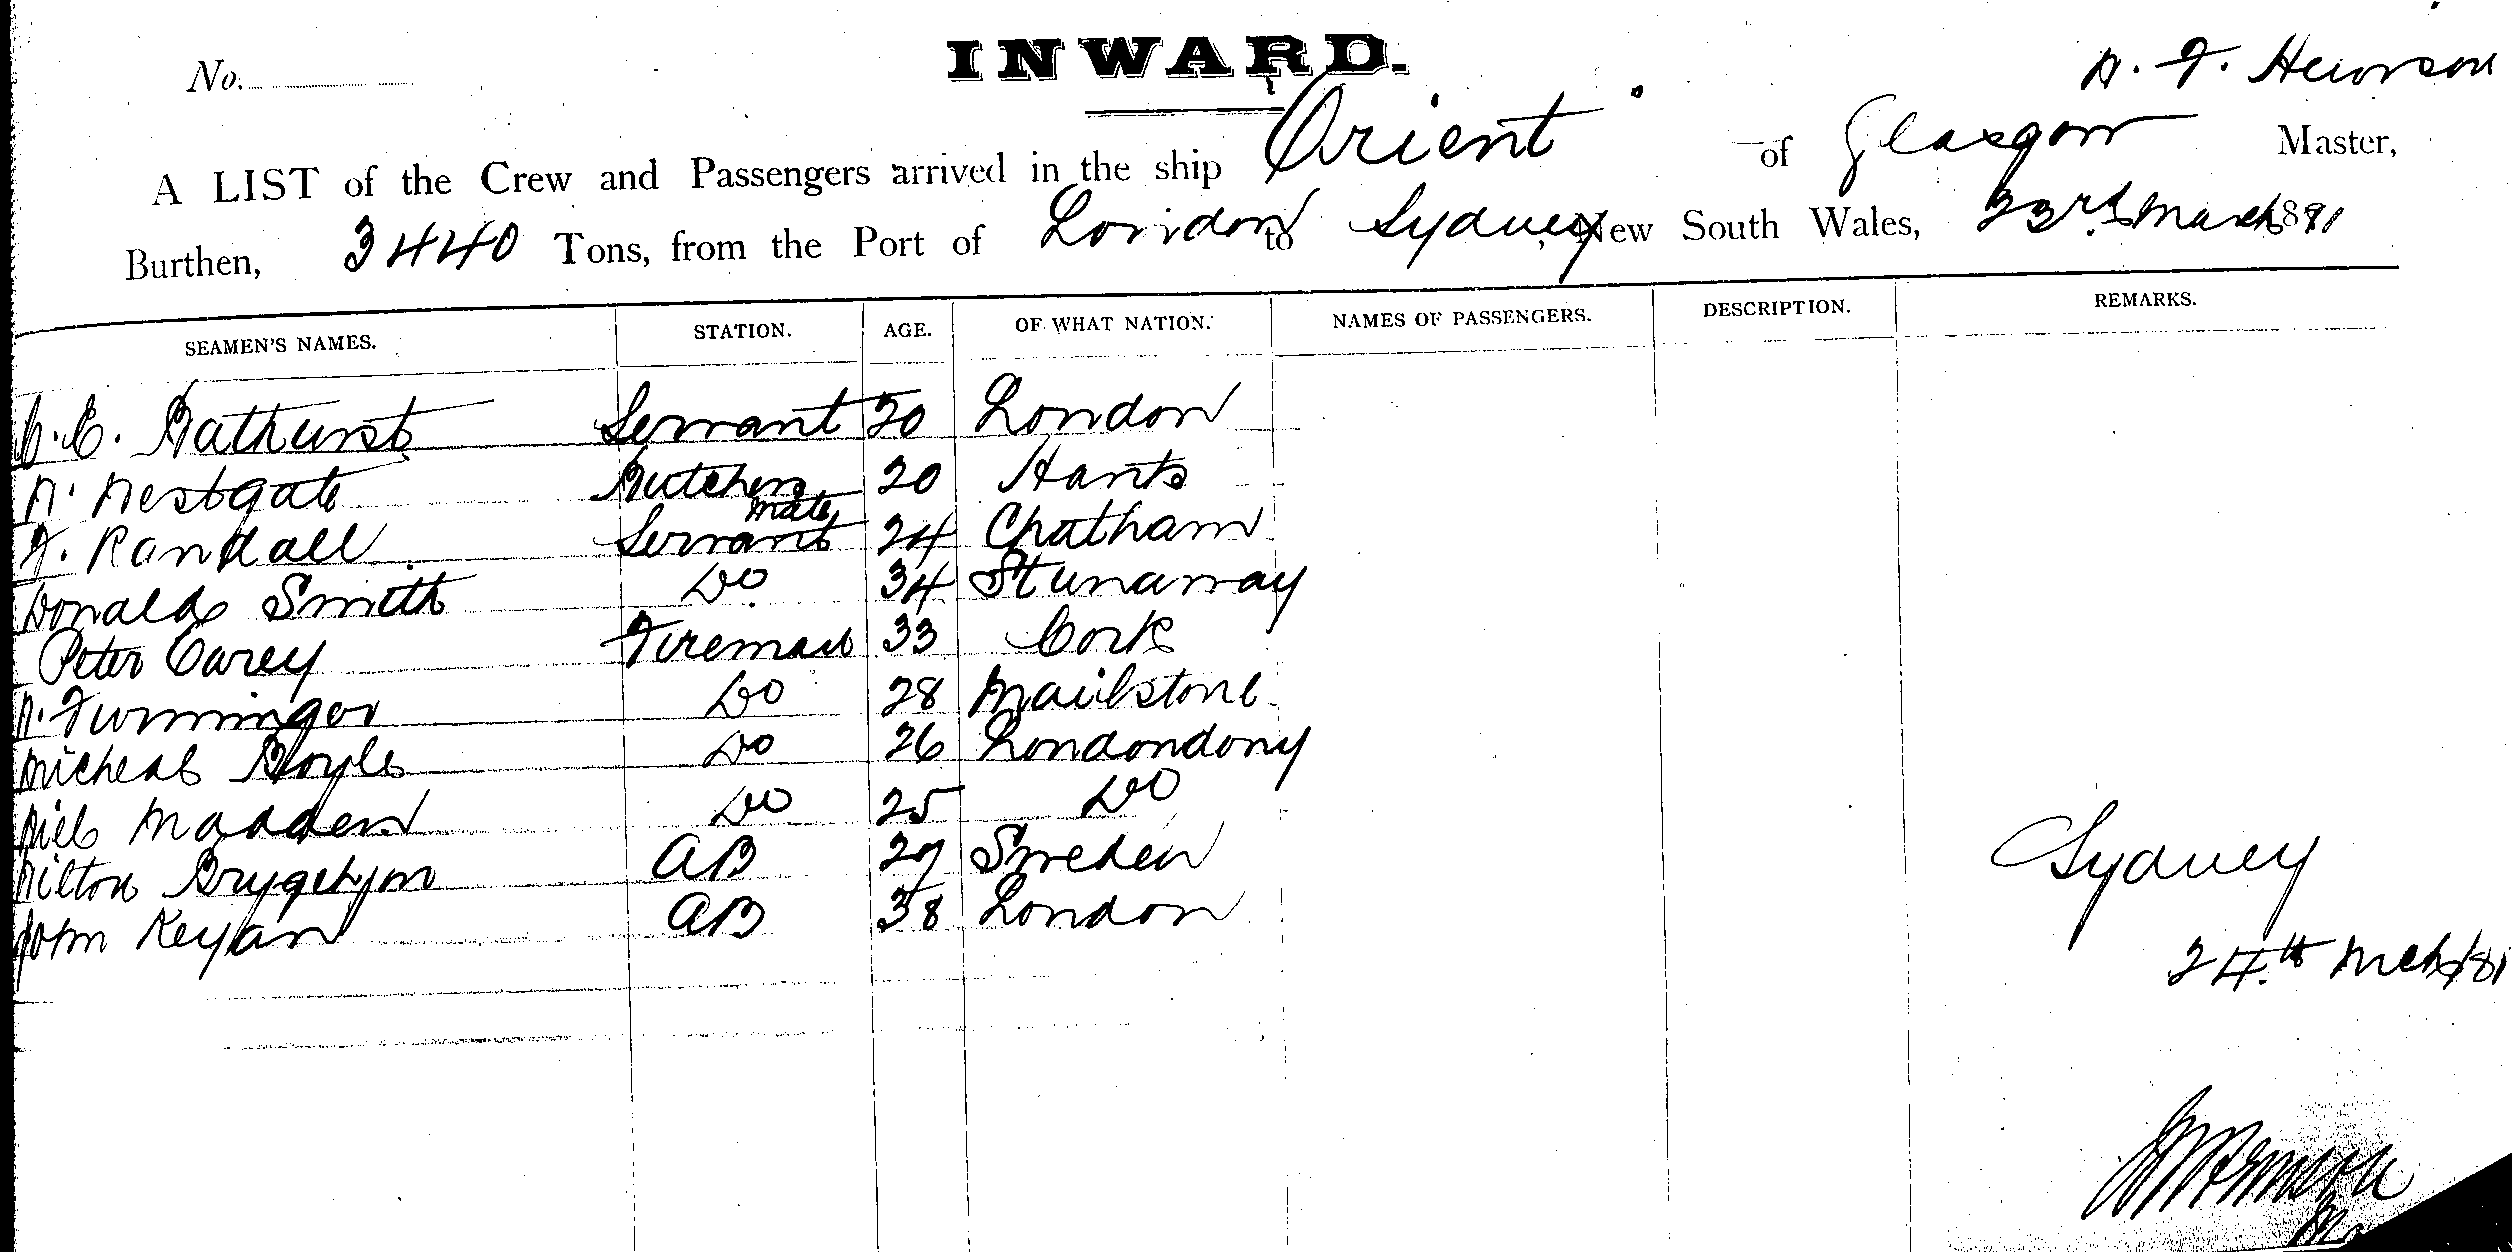 INWARD.
No.
W. F. Hewison
A LIST of the Crew and Passengers arrived in the ship Orient of Glasgow Master,
Burthen, 3440 Tons, from the Port of London to Sydney, New South Wales, 23rd March 1881
SEAMEN'S NAMES. STATION. AGE. OF WHAT NATION. NAMES OF PASSENGERS. DESCRIPTION. REMARKS.
C. C. Bathurst Servant 20 London
W. Westgate Butchers mate 20 Hants
F. Randall Servant 24 Chatham
Donald Smith Do 34 Stunaway
Peter Carey Fireman 33 Cork
W. Do 28 Maidstone
Micheal Boyle Do 26 Londondony
Niel Madden Do 25 Do
AB 27 Sweden
John Keyan AB 38 London
Sydney
24th Mch/81